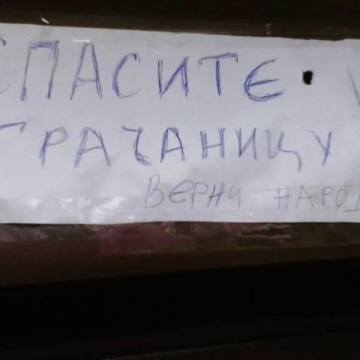 СПАСИТЕ
ГРАЧАНИЦУ
ВЕРНИ НАРОД